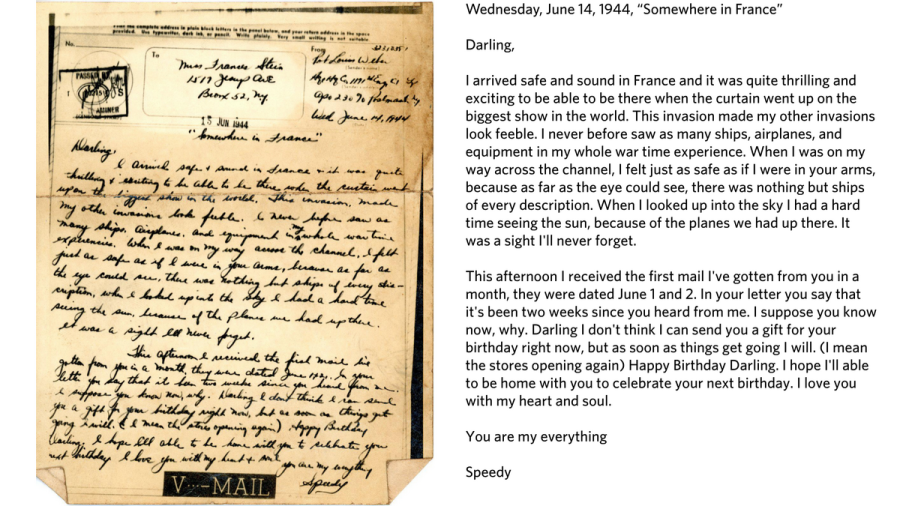 No.
complete address in plain block letters in the panel below, and your return address in the space
provided. Use typewriter, dark ink, or pencil. Write plainly. Very small writing is not suitable.
To
Miss Frances Stein
1517 Ave
Bronx 52, Ny.
From
Louis
Apo 230 % Postmaster, Ny
Wed June 14, 1944
15 JUN 1944
"Somewhere in France"
Darling,
I arrived safe + sound in France + it was quite
thrilling + exciting to be able to be there when the curtain went
upon the biggest show in the world. This invasion, made
my other invasions look feeble. I never before saw as
many ships, airplanes, and equipment in my whole war time
experiences. When I was on my way across the channel, I felt
just as safe as if I were in your arms, because as far as
the eye could see, there was nothing but ships of every des-
cription, when I looked up into the sky I had a hard time
seeing the sun, because of the planes we had up there.
It was a sight I'll never forget.
This afternoon I received the first mail I've
gotten from you in a month, they were dated June 1+2. In your
letter you say that it been two weeks since you heard from me.
I suppose you know now, why. Darling I don't think I can send
you a gift for your birthday right now, but as soon as things get
going I will. (I mean the stores opening again) Happy Birthday
Darling. I hope I'll able to be home with you to celebrate your
next birthday I love you with my heart + soul
you are my everything
Speedy
V···-MAIL
Wednesday, June 14, 1944, “Somewhere in France”
Darling,
I arrived safe and sound in France and it was quite thrilling and
exciting to be able to be there when the curtain went up on the
biggest show in the world. This invasion made my other invasions
look feeble. I never before saw as many ships, airplanes, and
equipment in my whole war time experience. When I was on my
way across the channel, I felt just as safe as if I were in your arms,
because as far as the eye could see, there was nothing but ships
of every description. When I looked up into the sky I had a hard
time seeing the sun, because of the planes we had up there. It
was a sight I'll never forget.
This afternoon I received the first mail I've gotten from you in a
month, they were dated June 1 and 2. In your letter you say that
it's been two weeks since you heard from me. I suppose you know
now, why. Darling I don't think I can send you a gift for your
birthday right now, but as soon as things get going I will. (I mean
the stores opening again) Happy Birthday Darling. I hope I'll able
to be home with you to celebrate your next birthday. I love you
with my heart and soul.
You are my everything
Speedy